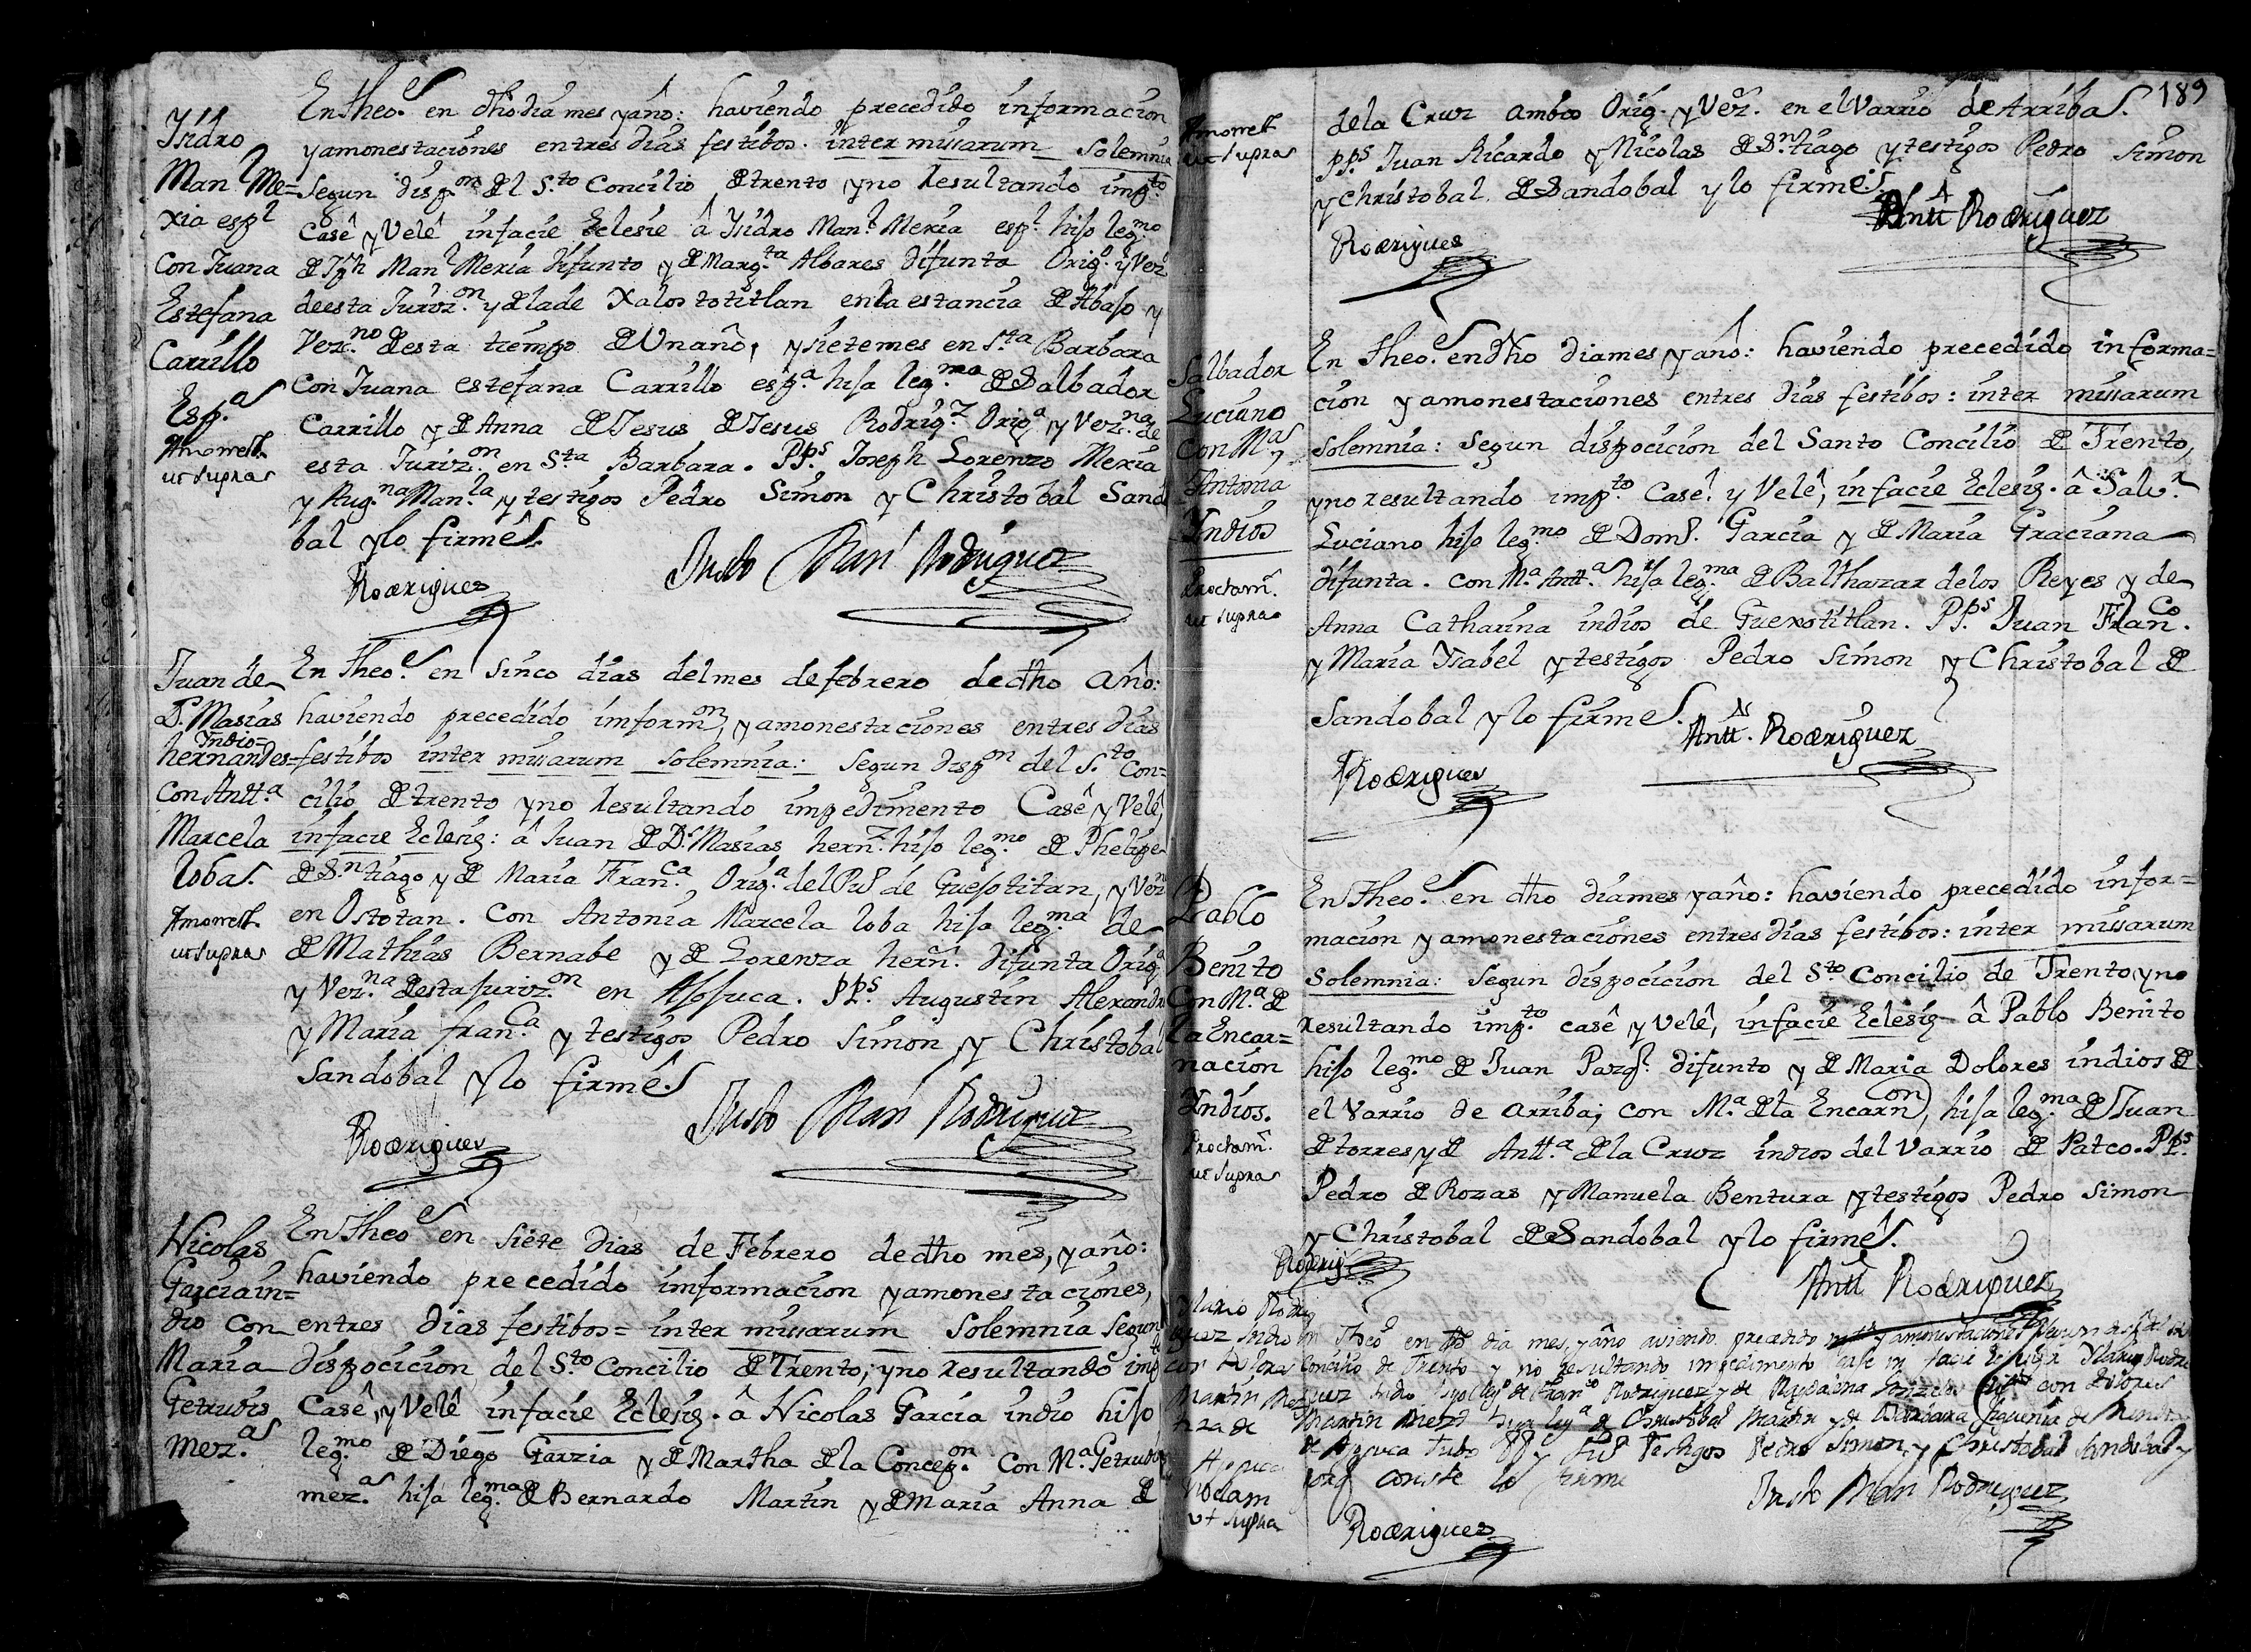 Ysidro
Man.l Me=
xia esp.l
Con Juana
Estefana
Carrillo
Esp.as
Amonest.
ut supra
En theo.e en dho dia mes y año: haviendo precedido informacion
y amonestaciones en tres dias festibos. inter missarum solemnia
Segun disp.on del S.to Concilio de trento y no resultando imp.to
Casê y Velê infacie Eclesie â Ysidro Man.l Mexia esp.l hijo leg.mo
de Jph Man.l Mexia difunto y de Marg.ta Albares difunta Orig.o y Vez.o
de esta Juriz.on y de la de Xalostotitlan en la estancia de Abajo y
Vez.no de esta tiempo de Un año, y siete mes en S.ta Barbara
con Juana estefana Carrillo esp.a hija leg.ma de Salbador
Carrillo y de Anna de Jesus de Jesus Rodrig.z Orig.a y Vez.na de
esta Juriz.on en S.ta Barbara. PP.s Joseph Lorenzo Mexia
y Aug.na Man.la y testigos Pedro Simon y Christobal Sando
bal y lo firmê.
Rodriguez
Justo Man.l Rodriguez
Juan de
D.s Masias
Yndio=
hernandes=
con Antt.a
Marcela
loba.
Amonest.
ut supra
En theo.e en Sinco dias del mes de febrero de dho año:
haviendo precedido inform.on y amonestaciones en tres dias
festibos inter missarum solemnia: Segun disp.on del S.to Con=
cilio de trento y no resultando impedimento Casê y Velê,
infacie Eclesiȩ: â Juan de D.s Masias hern.z hijo leg.mo de Phelipe
de S.ntiago y de Maria Fran.ca Orig.a del Pu.o de Guejotitan, y Vez.no
en Ostotan. Con Antonia Marcela loba hija leg.ma de
de Mathias Bernabe y de Lorenza hern̄. difunta Orig.a
y Vez.na de esta juriz.on en Ajojuca. PP.s Augustin Alexandro
y Maria fran.ca y testigos Pedro Simon y Christobal
Sandobal y lo firmê.
Rodriguez
Justo Man.l Rodriguez
Nicolas
Garcia in=
dio con
Maria
Getrudis
Mez.as
En theo.e en siete dias de Febrero de dho mes, y año:
haviendo precedido informacion y amonestaciones,
en tres dias festibos= inter missarum solemnia Segun
dispocicion del S.to Concilio de Trento; y no resultando imp.to
Casê, y Velê infacie Eclesiȩ. â Nicolas Garcia indio hijo
leg.mo de Diego Garzia y de Martha de la Concep.on Con M.a Getrudis
mez.a hija leg.ma de Bernardo Martin y de Maria Anna de
189
Amonest.
ut supra
de la Cruz ambos Orig.s y Vez.s en el Varrio de Arriba.
PP.s Juan Ricardo y Nicolas de S.ntiago y testigos Pedro Simon
y Christobal de Sandobal y lo firmê.
Rodriguez
Antt. Rodriguez
Salbador
Luciano
con M.a
Antonia
Yndios
Proclam.
ut supra
En theo.e en dho dia mes y año: haviendo precedido informa=
cion y amonestaciones en tres dias festibos: inter missarum
solemnia: Segun dispocicion del Santo Concilio de Trento,
y no resultando imp.to Casê y Velê, infacie Eclesiȩ. â Salv.r
Luciano hijo leg.mo de Dom.o Garcia y de Maria Graciana
difunta. con M.a Antt.a hija leg.ma de Balthazar de los Reyes y de
Anna Catharina indios de Guexotitlan. PP.s Juan Fran.co
y Maria Ysabel y testigos Pedro Simon y Christobal de
Sandobal y lo firmê.
Rodriguez
Antt. Rodriguez
Pablo
Benito
Con M.a de
la Encar=
nacion
Yndios.
Proclam.
ut supra
En theo.e en dho dia mes y año: haviendo precedido infor=
macion y amonestaciones en tres dias festibos: inter missarum
Solemnia: Segun dispocicion del S.to Concilio de Trento y no
resultando imp.to casê y velê, infacie Eclesiȩ â Pablo Benito
hijo leg.mo de Juan difunto y de Maria Dolores indios de
el Varrio de arriba; con M.a de la Encarn.on, hija leg.ma de Juan
de torres y de Antt.a de la Cruz indios del Varrio de Patco. PP.s
Pedro de Rozas y Manuela Bentura y testigos Pedro Simon
y Christobal de Sandobal y lo firmê.
Rodrig.z
Antt. Rodriguez
Ylario Rodri
guez Indio
con Dolores
Martin Mez
En theo.e en dho dia mes, y año aviendo precedido y amonestaciones Segun
Concilio de Trento y no resultando impedimento case in facie Ylario Rodri
guez Indio hijo leg.o de Fran.co Rodriguez y de Magdalena con Dolores
Martin hija leg.a de Christobal Martin y de Barbara
de Ajojuca Testigos Pedro Simon, y Christobal Sandobal y
para q. conste lo firmê
ut supra
Rodriguez
Justo Man.l Rodriguez